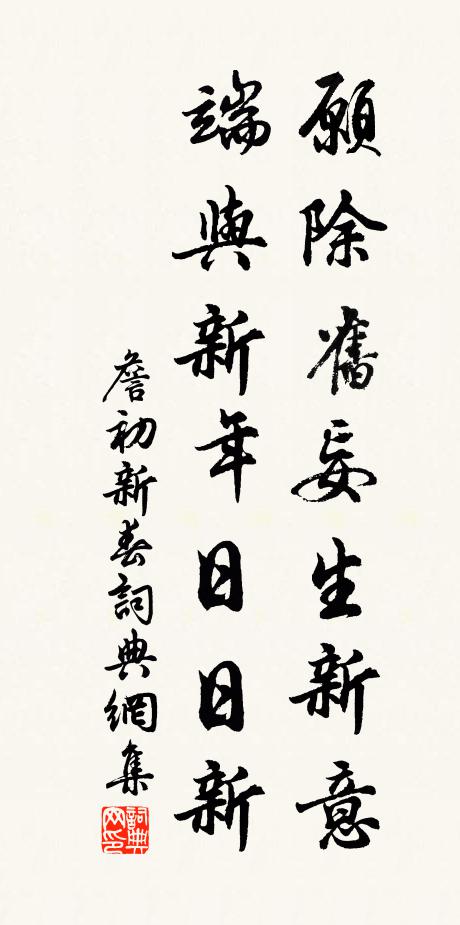 願除舊妄生新意
端與新年日日新
詹初新春詞典網集
詞典网印